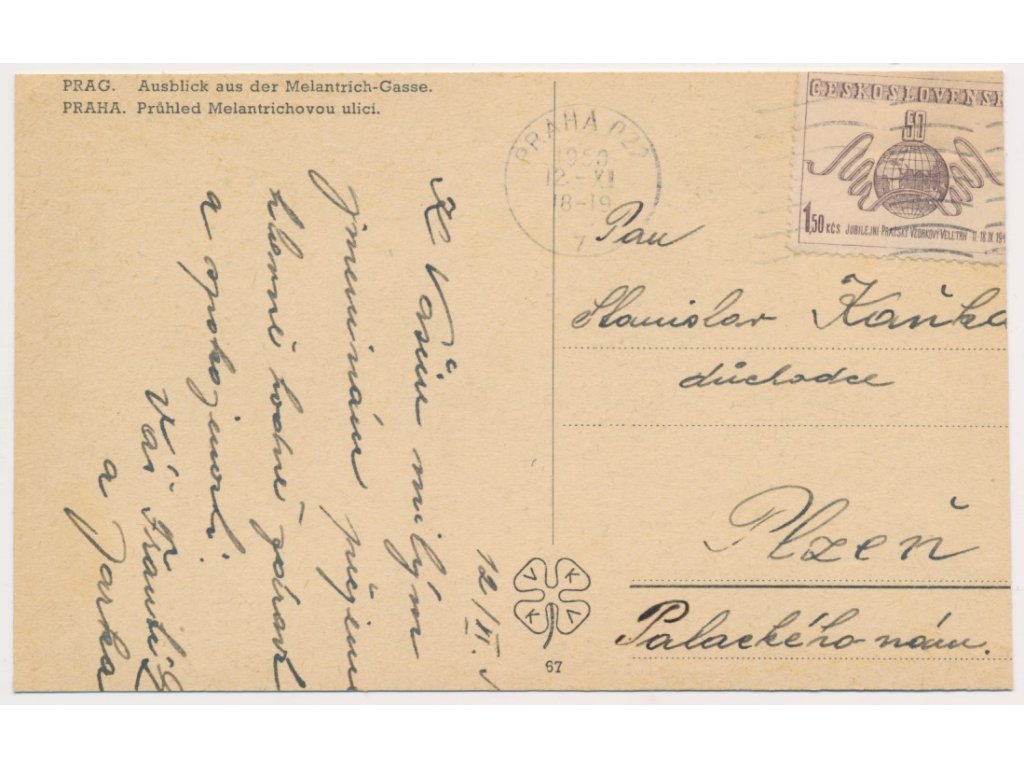 PRAG. Ausblick aus der Melantrich-Gasse.
PRAHA. Průhled Melantrichovou ulicí.
PRAHA 022
1950
12-XI
18-19
7
ČESKOSLOVENSK
50
1,50 KČS JUBILEJNÍ PRAŽSKÝ VZORKOVÝ VELETRH 11.-18.IX.19
12/XI.
K Vašim milým
jmeninám přejeme
hlavně hodně zdraví
a spokojenosti.
Váš
a Jarka
Pan
Stanislav Kaňka
důchodce
Plzeň
Palackého nám.
V K
K V
67